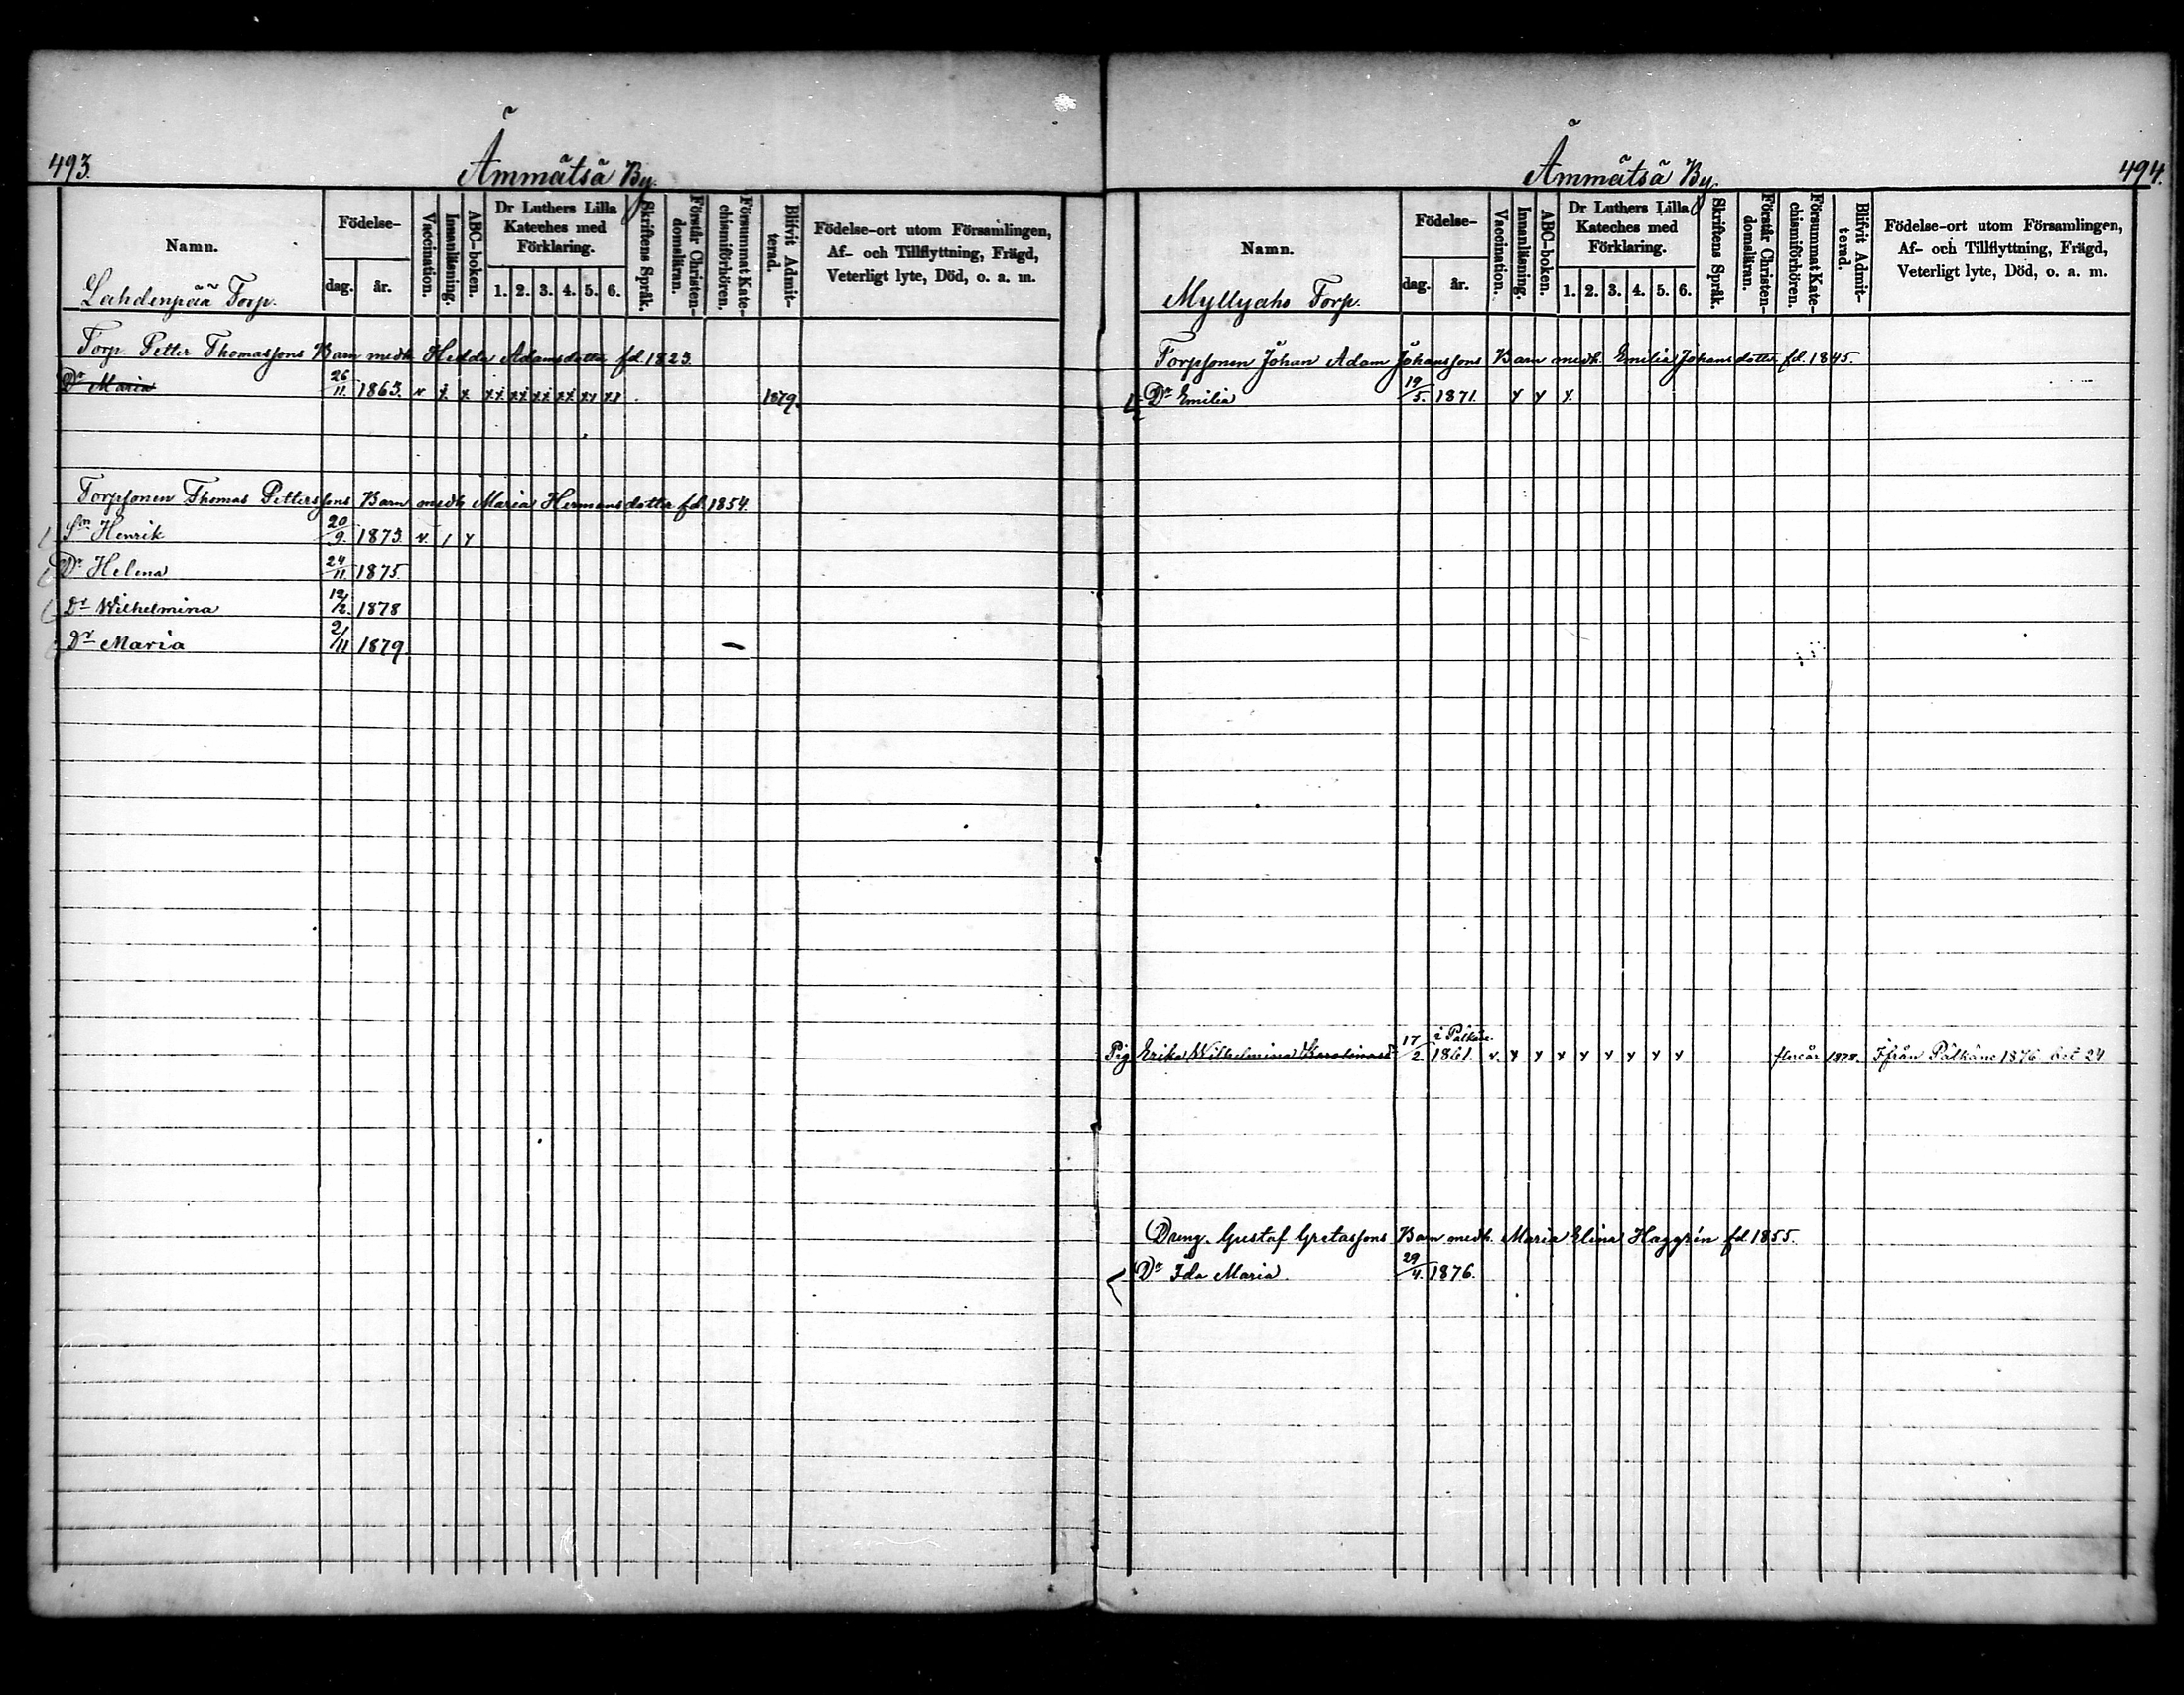 493.
Ämmätsä By.
Namn.
Födelse-
dag.
år.
Vaccination.
Innanläsning.
ABC-boken.
Dr Luthers Lilla
Kateches med
Förklaring.
1. 2. 3. 4. 5. 6.
Skriftens Språk.
Förstår Christen-
domsläran.
Försummat Kate-
chismiförhören.
Blifvit Admit-
terad.
Födelse-ort utom Församlingen,
Af- och Tillflyttning, Frägd,
Veterligt lyte, Död, o. a. m.
Lahdenpää Torp.
Torp. Petter Thomassons Barn medh. Hedda Adamsdotter fd. 1823.
Dr Maria 26/11. 1863. v x x xx xx xx xx xx xx 1879.
Torpsonen Thomas Petterssons Barn medh Maria Hermansdotter fd. 1854.
Sn Henrik 20/9. 1873 v. / x
Dr Helena 24/11 1875.
Dr Wilhelmina 12/2. 1878
Dr Maria 2/11 1879.
494.
Ämmätsä By.
Namn.
Födelse-
dag.
år.
Vaccination.
Innanläsning.
ABC-boken.
Dr Luthers Lilla
Kateches med
Förklaring.
1. 2. 3. 4. 5. 6.
Skriftens Språk.
Förstår Christen-
domsläran.
Försummat Kate-
chismiförhören.
Blifvit Admit-
terad.
Födelse-ort utom Församlingen,
Af- och Tillflyttning, Frägd,
Veterligt lyte, Död, o. a. m.
Myllyaho Torp.
Torpsonen Johan Adam Johanssons Barn medh. Emilia Johansdotter fd. 1845.
Dr Emilia 19/5. 1871. x x x
i Pälkäne
Pig Erika Wilhelmina Karolinasdr 17/2. 1861. v. x x x x x x x x flere år 1878. Ifrån Pälkäne 1876. bet 24
Dreng. Gustaf Gustafssons Barn medh. Maria Elina Haggrén fd 1855.
Dr Ida Maria. 29/4. 1876.